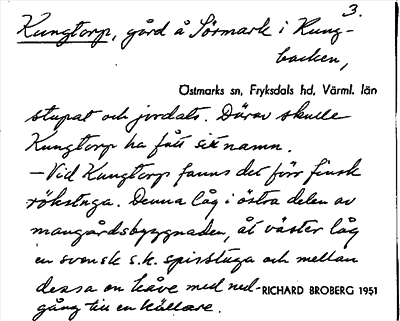 3.
Kungtorp, gård å Sörmark i Kung-
backen,
Östmarks sn, Fryksdals hd, Värml. län
stupat och jordats. Därav skulle
Kungtorp ha fått sitt namn.
— Vid Kungtorp fanns det förr finsk
rökstuga. Denna låg i östra delen av
mangårdsbyggnaden, åt väster låg
en svensk s.k. spisstuga och mellan
dessa en kåve med ned-
RICHARD BROBERG 1951
gång till en källare.